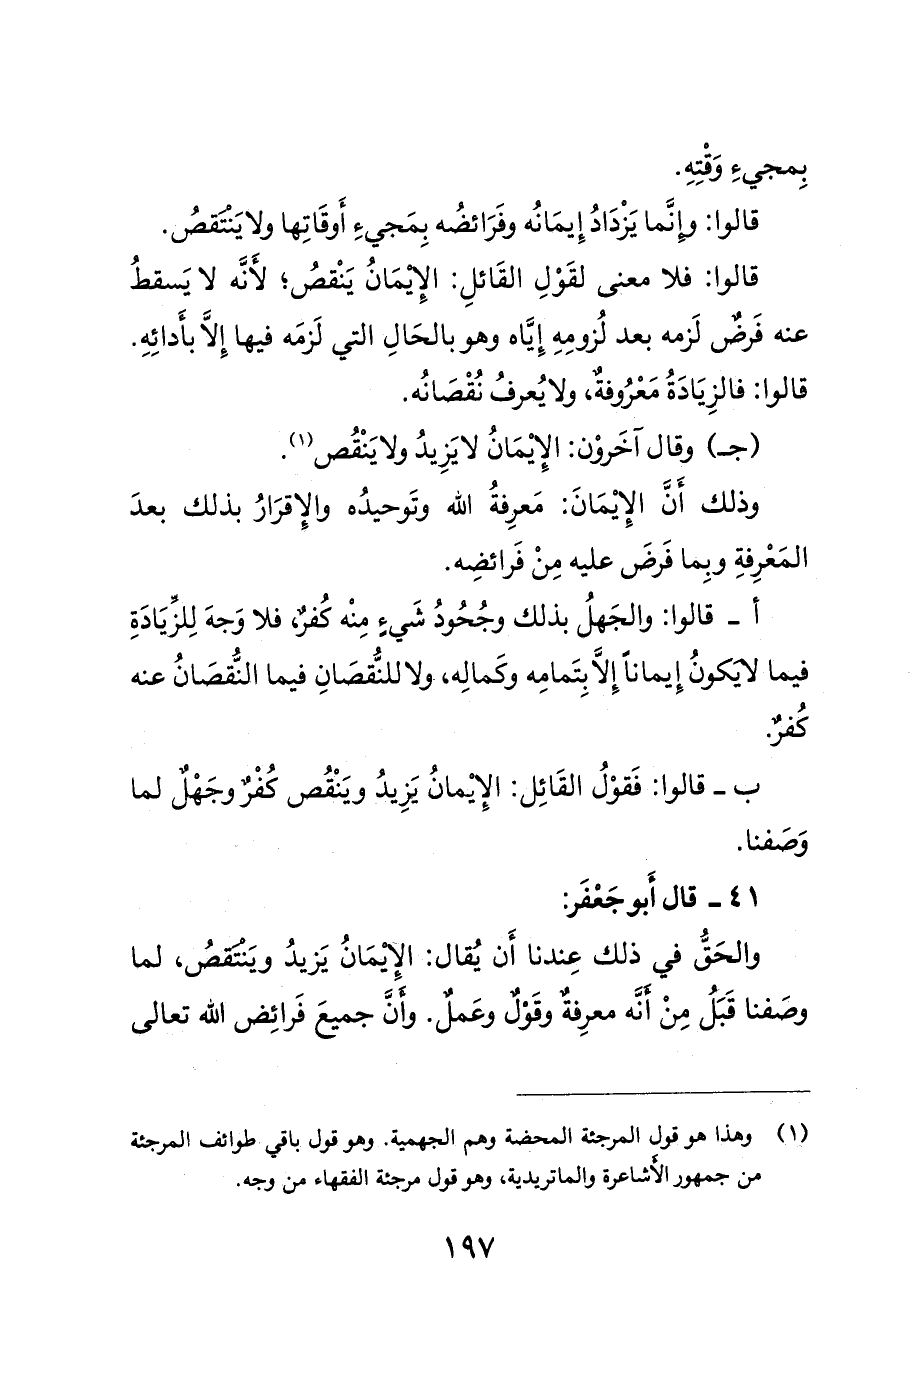 بِمجيءِ وَقْتِهِ.
قالوا: وإنَّما يَزْدَادُ إيمَانُه وفَرَائضُه بِمَجيءِ أَوقَاتِها ولا يَنْتَقصُ.
قالوا: فلا معنى لقَوْلِ القَائلِ: الإِيْمَانُ يَنْقصُ؛ لأَنَّه لا يَسقطُ
عنه فَرضٌ لَزمه بعد لُزومِهِ إيَّاه وهو بالحَالِ التي لَزمَه فيها إلاَّ بأَدائِهِ.
قالوا: فالزيَادَةُ مَعْرُوفةٌ، ولا يُعرفُ نُقْصَانُه.
(جـ) وقال آخَروْن: الإِيْمَانُ لا يَزِيدُ ولا يَنْقُص(١).
وذلك أَنَّ الإِيْمَانَ: مَعرِفةُ الله وتَوحيدُه والإِقرَارُ بذلك بعدَ
المَعْرِفةِ وبِما فَرضَ عليه مِنْ فَرائضِه.
أ ـ قالوا: والجَهلُ بذلك وجُحُودُ شَيءٍ مِنْه كُفرٌ، فلا وَجهَ لِلزِّيَادَةِ
فيما لا يَكونُ إيماناً إلاَّ بِتَمامِه وكَمالِه، ولا للنُّقصَانِ فيما النُّقصَانُ عنه
كُفرٌ.
ب ـ قالوا: فَقولُ القَائِل: الإِيْمانُ يَزِيدُ ويَنْقُص كُفْرٌ وجَهْلٌ لما
وَصَفنا.
٤١ ـ قال أَبو جَعْفَر:
والحَقُّ في ذلك عِندنا أَن يُقال: الإِيْمَانُ يَزيدُ ويَنْتَقصُ، لما
وصَفنا قَبَلُ مِنْ أَنَّه معرِفةٌ وقَوْلٌ وعَملٌ. وأَنَّ جميعَ فَرائِض الله تعالى
(١) وهذا هو قول المرجئة المحضة وهم الجهمية. وهو قول باقي طوائف المرجئة
من جمهور الأشاعرة والماتريدية، وهو قول مرجئة الفقهاء من وجه.
١٩٧